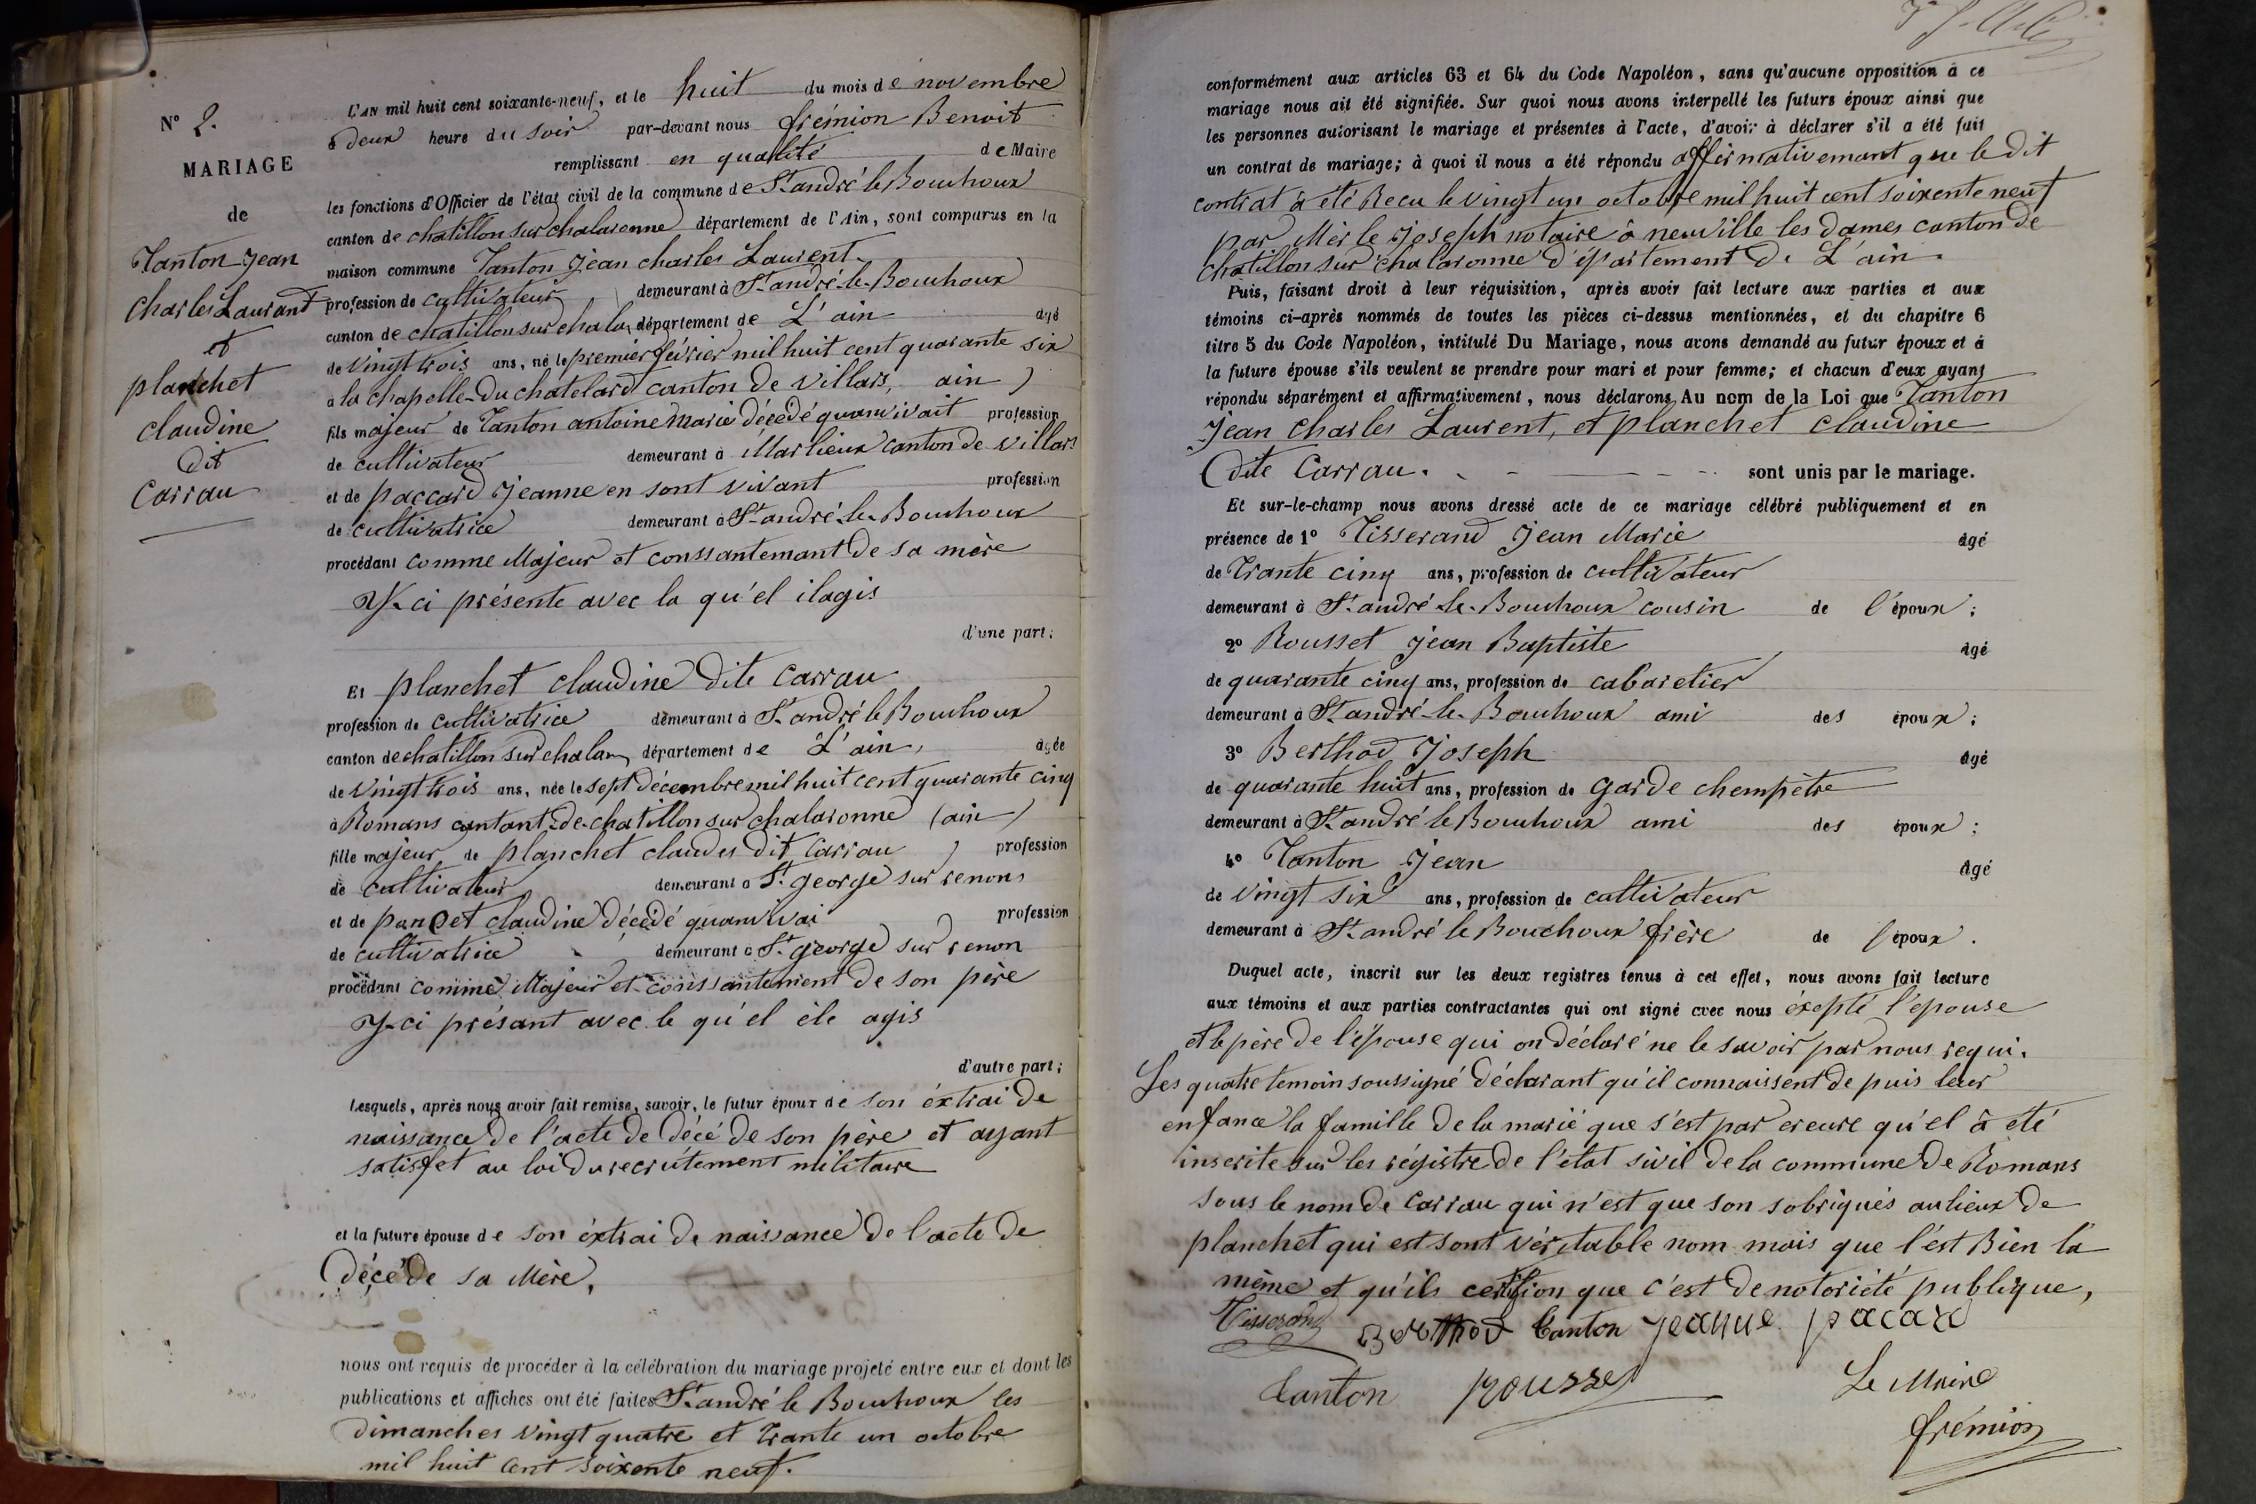 N° 2.
MARIAGE
de
Tanton Jean
Charles Laurant
et
planchet
claudine
dit
Carrau
L'AN mil huit cent soixante-neuf, et le huit du mois de novembre
à deux heure du soir par-devant nous frémion Benoit
remplissant en qualité de Maire
les fonctions d'Officier de l'état civil de la commune de St andré le Bouchoux
canton de chatillon sur chalaronne département de l'Ain, sont comparus en la
maison commune Tanton jean charles Laurent.
profession de cultivateur demeurant à St andré-le-Bouchoux
canton de chatillon sur chalar département de L'ain agé
de vingt trois ans, né le premier février mil huit cent quarante six
à la chapelle-du chatelard canton de villars, ain )
fils majeur de Tanton antoine marie décedé quanvivait profession
de cultivateur demeurant à Marlieux canton de villars
et de paccard jeanne en sont vivant profession
de cultivatrice demeurant à St andré-le-Bouchoux
procédant comme Majeur et conssantemant de sa mère
Y-ci présente avec la qu'el ilagis
d'une part;
Et planchet claudine dite Carrau
profession de cultivatrice demeurant à St andré le Bouchoux
canton de chatillon sur chalar département de L'ain, agée
de vingt trois ans, née le sept décembre mil huit cent quarante cinq
à Romans cantant-de-chatillon sur chalaronne (ain)
fille majeur de planchet claudes dit Carrau ) profession
de cultivateur demeurant à St george sur renons
et de panget claudine décédé quanvivai ) profession
de cultivatrice demeurant à St george sur renon
procédant comme Majeur et conssantement de son père
Y-ci présant avec le qu'el éle agis
d'autre part;
Lesquels, après nous avoir fait remise, savoir, le futur époux de son éxtrai de
naissance de l'acte de décé de son père et ayant
satisfet au loi du recrutement militaire
et la future épouse de son éxtrai de naissance de l'acte de
décé de sa Mère,
nous ont requis de procéder à la célébration du mariage projeté entre eux et dont les
publications et affiches ont été faites St andré le Bouchoux les
dimanches vingt quatre et trante un octobre
mil huit cent soixente neuf.
conformément aux articles 63 et 64 du Code Napoléon, sans qu'aucune opposition à ce
mariage nous ait été signifiée. Sur quoi nous avons interpellé les futurs époux ainsi que
les personnes autorisant le mariage et présentes à l'acte, d'avoir à déclarer s'il a été fait
un contrat de mariage; à quoi il nous a été répondu affirmativemant que le dit
contrat à été Recu le vingt un octobre mil huit cent soixente neuf
par Merle Joseph notaire à neuville les dames canton de
chatillon sur chalaronne d'épartement de L'ain.
Puis, faisant droit à leur réquisition, après avoir fait lecture aux parties et aux
témoins ci-après nommés de toutes les pièces ci-dessus mentionnées, et du chapitre 6
titre 5 du Code Napoléon, intitulé Du Mariage, nous avons demandé au futur époux et à
la future épouse s'ils veulent se prendre pour mari et pour femme; et chacun d'eux ayant
répondu séparément et affirmativement, nous déclarons Au nom de la Loi que Tanton
Jean Charles Laurent, et planchet claudine
dite Carrau. sont unis par le mariage.
Et sur-le-champ nous avons dressé acte de ce mariage célébré publiquement et en
présence de 1° Tisserand Jean Marie âgé
de Trante cinq ans, profession de cultivateur
demeurant à St andré-le-Bouchoux cousin de l'époux;
2° Rousset jean Baptiste âgé
de quarante cinq ans, profession de cabaretier
demeurant à St andré-le-Bouchoux ami des époux;
3° Berthod Joseph âgé
de quarante huit ans, profession de garde chempètre
demeurant à St andré le Bouchoux ami des époux;
4° Tanton Jean âgé
de vingt six ans, profession de cultivateur
demeurant à St andré le Bouchoux frère de l'époux.
Duquel acte, inscrit sur les deux registres tenus à cet effet, nous avons fait lecture
aux témoins et aux parties contractantes qui ont signé avec nous éxepté l'épouse
et le père de l'épouse qui on déclaré ne le savoir par nous requi.
Les quatre temoin soussigné déclarant qu'il connaissent de puis leur
enfance la famille de la marié que s'est par ereure qu'el à eté
inscrite sur les régistre de l'état sivil de la commune de Romans
sous le nom de Carrau qui n'est que son sobriqués aulieux de
planchet qui est sont véritable nom mais que l'est Bien la
même et qu'ils certifion que c'est de notorieté publique,
Tisserand Berthod tanton jeanne pacard
tanton Rousset Le Maire
frémion